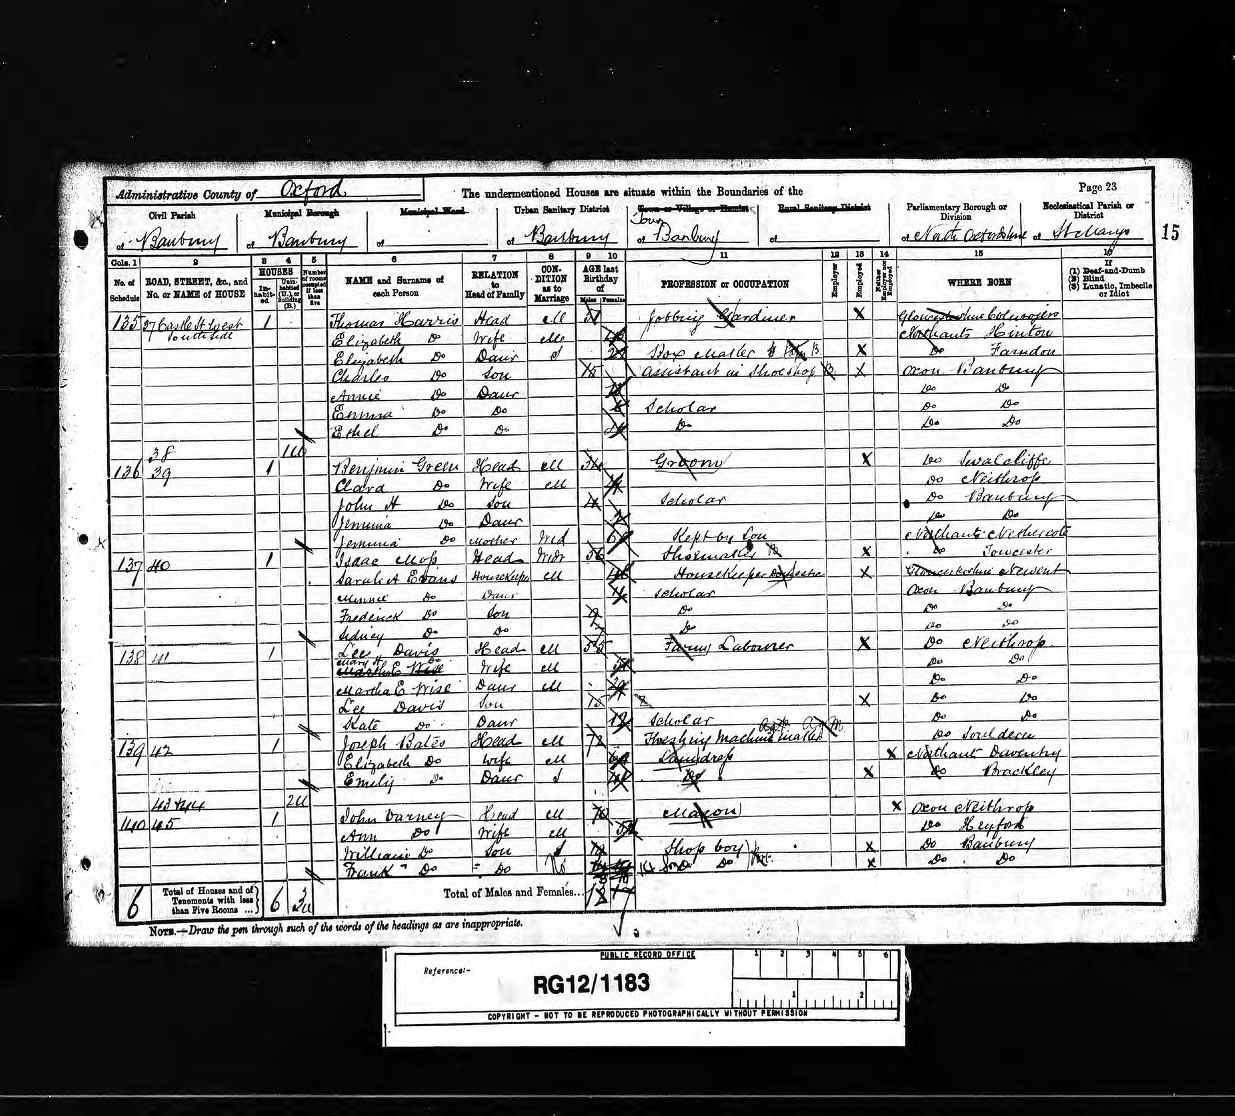 Administrative County of Oxford The undermentioned Houses are situate within the Boundaries of the Page 23
Civil Parish Municipal Borough Municipal Ward Urban Sanitary District Town or Village or Hamlet Rural Sanitary District Parliamentary Borough or Division Ecclesiastical Parish or District
of Banbury of Banbury of of Banbury Town of Banbury of of North Oxfordshire of St Marys 15
Cols. 1 2 3 4 5 6 7 8 9 10 11 12 13 14 15 16
No. of Schedule ROAD, STREET, &c., and No. or NAME of HOUSE HOUSES In-habit-ed Unin-habited (U.), or Building (B.) Number of rooms occupied if less than five NAME and Surname of each Person RELATION to Head of Family CON-DITION as to Marriage AGE last Birthday of Males Females PROFESSION or OCCUPATION Employer Employed Neither Employer nor Employed WHERE BORN If (1) Deaf-and-Dumb (2) Blind (3) Lunatic, Imbecile or Idiot
135 37 Castle St West 1 Thomas Harris Head M Jobbing Gardiner X Gloucestershire
South side Elizabeth Do Wife M Northants Hinton
Elizabeth Do Daur S Box Maker X Do Farndon
Charles Do Son 15 Assistant in Shoe shop X Oxon Banbury
Annie Do Daur Do Do
Emma Do Do Scholar Do Do
Ethel Do Do Do Do Do
38 1U
136 39 1 Benjamin Green Head M 34 Groom X Do Swalcliffe
Clara Do Wife M Do Neithrop
John H Do Son 4 Scholar Do Banbury
Jemima Do Daur Do Do
Jemima Do Mother Wid Kept by Son Northants Nethercote
137 40 1 Isaac Mop Head Widr 56 Shoemaker X Do Towcester
Sarah A Evans Housekeeper M Housekeeper Domestic X Gloucestershire Newent
Minnie Do Daur Scholar Oxon Banbury
Frederick Do Son 9 Do Do Do
Sidney Do Do 7 Do Do Do
138 41 1 Lee Davis Head M 55 Farm Labourer X Do Neithrop
Mary A Do Wife M Do Do
Martha E Wise Daur M Do Do
Lee Davis Son 15 X Do Do
Kate Do Daur 12 Scholar Do Do
139 42 1 Joseph Bates Head M 72 Threshing Machine Maker Do Souldern
Elizabeth Do Wife M Laundress X Northants Daventry
Emily Do Daur S Do X Do Brackley
43 & 44 2U
140 45 1 John Varney Head M 70 Mason X Oxon Neithrop
Ann Do Wife M Do Heyford
William Do Son S Shop boy X Do Banbury
Frank Do Do Do X Do Do
6 Total of Houses and of Tenements with less than Five Rooms ... 6 3U Total of Males and Females... 18 17
NOTE.—Draw the pen through such of the words of the headings as are inappropriate.
PUBLIC RECORD OFFICE 1 2 3 4 5 6
Reference:-
RG12/1183 1 2
COPYRIGHT - NOT TO BE REPRODUCED PHOTOGRAPHICALLY WITHOUT PERMISSION